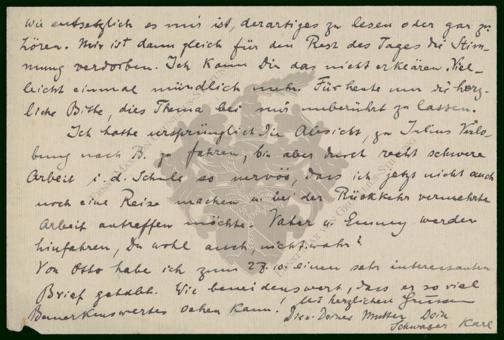 wie entsetzlich es mir ist, derartiges zu lesen oder gar zu
hören. Mir ist dann gleich für den Rest des Tages die Stim-
mung verdorben. Ich kann Dir das nicht erklären. Viel-
leicht einmal mündlich mehr. Für heute nur die herz-
liche Bitte, dies Thema bei mir unberührt zu lassen.
Ich hatte ursprünglich die Absicht, zu Julius Verlo-
bung nach B. zu fahren, bin aber durch recht schwere
Arbeit i. d. Schule so nervös, dass ich jetzt nicht auch
noch eine Reise machen u. bei der Rückkehr vermehrte
Arbeit antreffen möchte. Vater u. Emmy werden
hinfahren, Du wohl auch, nicht wahr?
Von Otto habe ich zum 28. einen sehr interessanten
Brief gehabt. Wie beneidenswert, dass er so viel
Bemerkenswertes sehen kann! Mit herzlichen Grüssen
Dir u. Deiner Mutter Dein
Schwager Karl